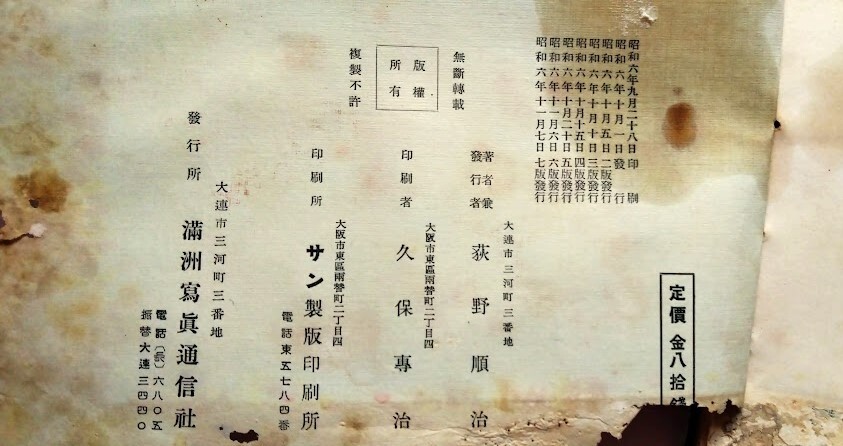 定價 金八拾錢
昭和六年九月二十八日印刷
昭和六年十月一日發行
昭和六年十月五日二版發行
昭和六年十月十日三版發行
昭和六年十月十五日四版發行
昭和六年十月二十日五版發行
昭和六年十一月六日六版發行
昭和六年十一月七日七版發行
無斷轉載
版權
所有
複製不許
大連市三河町三番地
著者兼
發行者
荻野順治
大阪市東區兩替町二丁目四
印刷者 久保專治
大阪市東區兩替町二丁目四
印刷所 サン製版印刷所
電話東五七八四番
大連市三河町三番地
發行所 滿洲寫眞通信社
電話(長)六八〇五
振替大連三四四〇